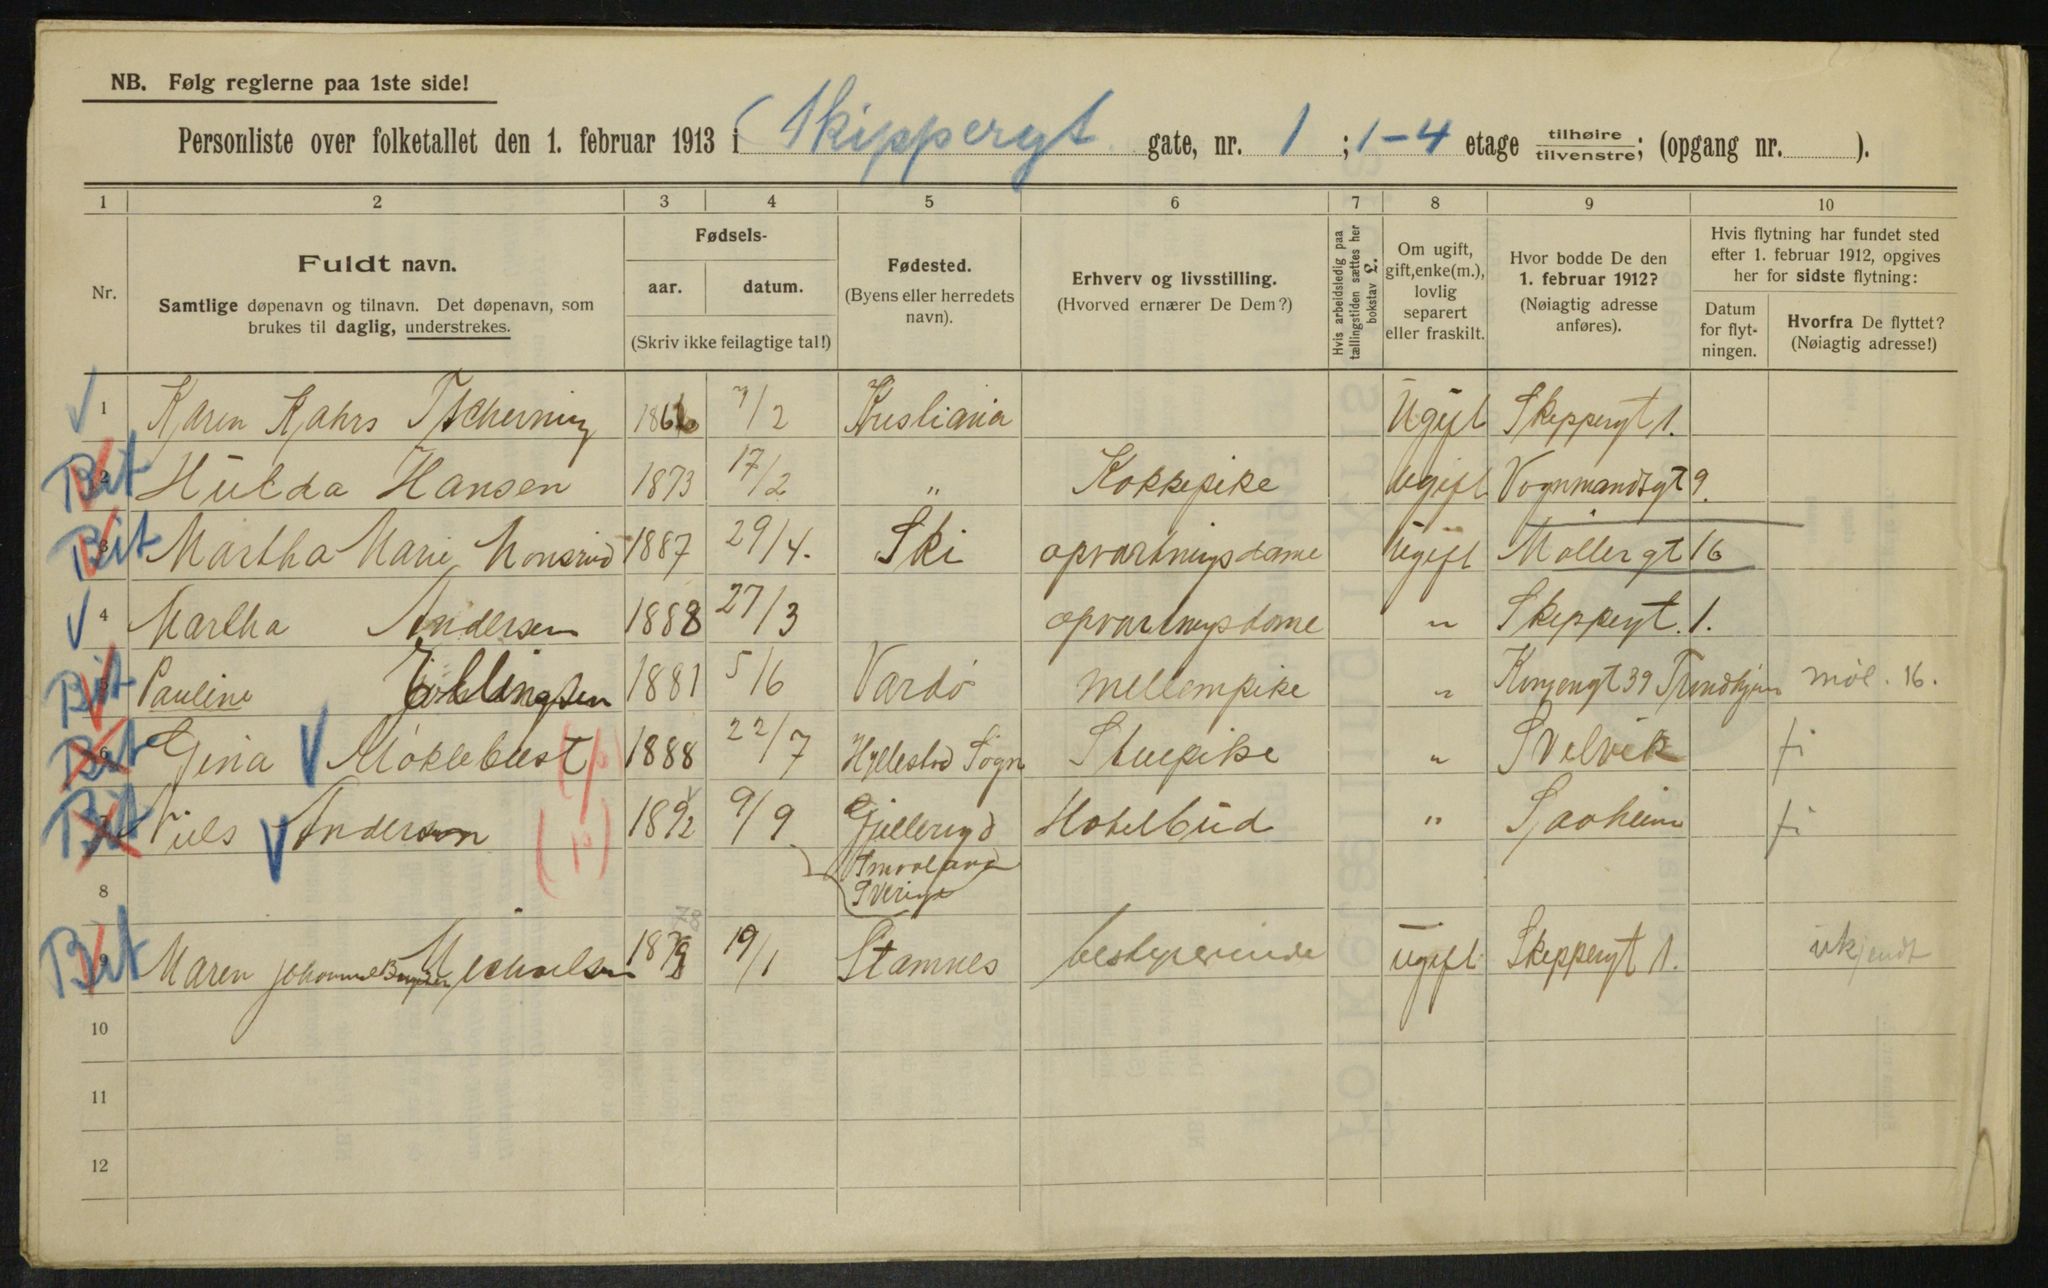 NB. Følg reglerne paa 1ste side!
Personliste over folketallet den 1. februar 1913 i Skippergt gate, nr. 1 ; 1-4 etage tilhøire/tilvenstre; (opgang nr. ).
1 2 3 4 5 6 7 8 9 10
Nr.
Fuldt navn.
Samtlige døpenavn og tilnavn. Det døpenavn, som
brukes til daglig, understrekes.
Fødsels-
aar. datum.
(Skriv ikke feilagtige tal!)
Fødested.
(Byens eller herredets
navn).
Erhverv og livsstilling.
(Hvorved ernærer De Dem?)
Hvis arbeidsledig paa
tællingstiden sættes her
bokstav L.
Om ugift,
gift, enke(m.),
lovlig
separert
eller fraskilt.
Hvor bodde De den
1. februar 1912?
(Nøiagtig adresse
anføres).
Hvis flytning har fundet sted
efter 1. februar 1912, opgives
her for sidste flytning:
Datum
for flyt-
ningen.
Hvorfra De flyttet?
(Nøiagtig adresse!)
1 Karen Kahrs Tscherning 7/2 Kristiania Ugift Skippergt 1.
Bit 2 Hulda Hansen 1873 17/2 " Kokkepike Ugift Vognmandsgt 9.
Bit 3 Martha Marie Monsrud 1887 29/4. Ski opvartningsdame Ugift Møllergt 16
4 Martha Andersen 1888 27/3 opvartningsdame " Skippergt. 1.
Bit 5 Pauline Ellingsen 1881 5/6 Vardø mellempike " Kongengt 39 Trondhjem møl. 16.
Bit 6 Gina Møklebust 1888 22/7 Hyllestad Sogn Stuepike " Svelvik fi
Bit 7 Niels Anderson 1892 9/9 Gjelleryd Hotelbud " Sjaaheim fi
Smaaland
Sverige
8
Bit 9 Maren Johanne Michaelsen 19/1 Stamnes bestyrerinde ugift Skippergt 1. ukjendt
10
11
12